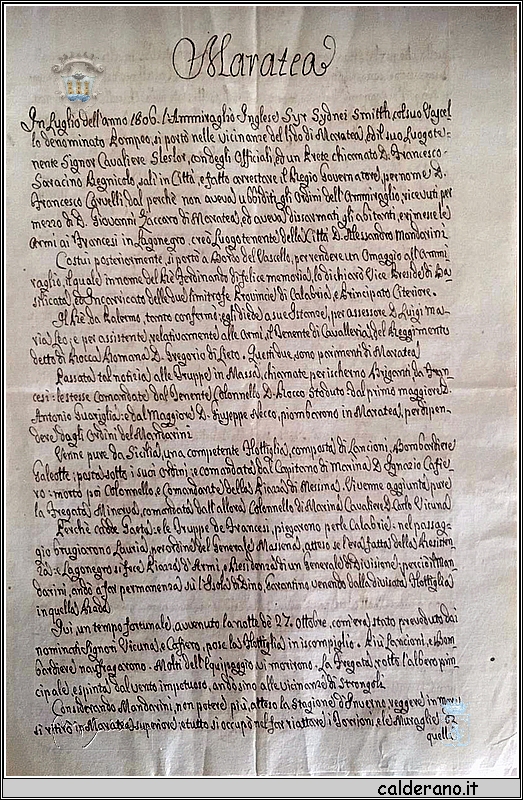 Maratea
In Luglio dell'anno 1806. l'Ammiraglio Inglese Syr Sydnei Smitth, col suo Vascel-
lo denominato Pompeo, si portò nelle vicinanze del lido di Maratea, ed il suo Luogote-
nente Signor Cavaliere Sleslor, con degli Officiali, ed un Prete chiamato D. Francesco
Saracino Regnicolo, salì in Città, e fatto arrestare il Regio Governatore, per nome D.
Francesco Carvelli dal perchè non aveva ubbiditi gli Ordini dell'Ammiraglio, ricevuti per
mezzo di D. Giovanni Zaccaro di Maratea, ed aveva disarmati gli abitanti, e rimese le
Armi ai Francesi in Lagonegro, creò Luogotenente della Città D. Alessandro Mandarini
Costui posteriormente, si portò a Bordo del Vascello, per rendere un Omaggio all'Ammi-
raglio, il quale in nome del Rè Ferdinando di felice memoria, lo dichiarò Vice Preside di Ba-
silicata, ed Incaricato delle due limitrofe Provincie di Calabria, e Principato Citeriore.
Il Rè da Palermo, tanto confermò; e gli diede a sue Istanze, per assessore D. Luigi Ma-
ria Leo; e per assistente, relativamente alle Armi, il Tenente di Cavalleria del Reggimento
detto di Rocca Romana D. Gregorio di Lieto. Questi due sono parimenti di Maratea
Passata tal notizia alle Truppe in Massa, chiamate per ischerno Briganti, da Fran-
cesi: le stesse Comandate dal Tenente Colonnello D. Rocco Stoduto dal primo maggiore D.
Antonio Guariglia: e dal Maggiore D. Giuseppe Necco, piombarono in Maratea, per dipen-
dere dagli Ordini del Mandarini
Venne pure da Sicilia, una competente Flottiglia, composta di Lancioni, Bombardiere
Galeotte: posta sotto i suoi Ordini; e comandata dal Capitano di Marina D. Ignazio Cafie-
ro: morto poi Colonnello e Comandante della Piazza di Messina. Vi venne aggiunta, pure
la Fregata Minerva, comandata dall'allora Colonnello di Marina Cavaliere D. Carlo Vicuna
Perchè cadde Gaeta: e le Truppe de' Francesi, piegarono per le Calabrie: nel passag-
gio brugiarono Lauria, per ordine del Generale Massena, attruo se l'era fatta della Resisten-
za: e Lagonegro si fece Piazza d'Armi, e Residenza di un Generale di Divisione; perciò Man-
darini, andò a far permanenza sù l'Isola di Dino, scarantino venendo dalla divisata Flottiglia
in quella Rada
Qui, un tempo fortunale, avvenuto la notte dè 27. ottobre, com'era stato preveduto dai
nominati Signori Vicuna, e Cafiero, pose la Flottiglia in iscompiglio. Più Lancioni, e Bom-
bardiere naufragarono. Molti dell'Equipeggio vi morirono. La Fregata, rotto l'albero prin-
cipale, e spinta dal vento impetuoso, andò sino alle vicinanze di Strongoli.
Considerando Mandarini, non potere più, attesa la stagione d'Inverno, reggere in mare
si ritirò in Maratea superiore: e tutto si occupò nel far riattare i Torrioni, e le Muraglie di
quella
calderano.it